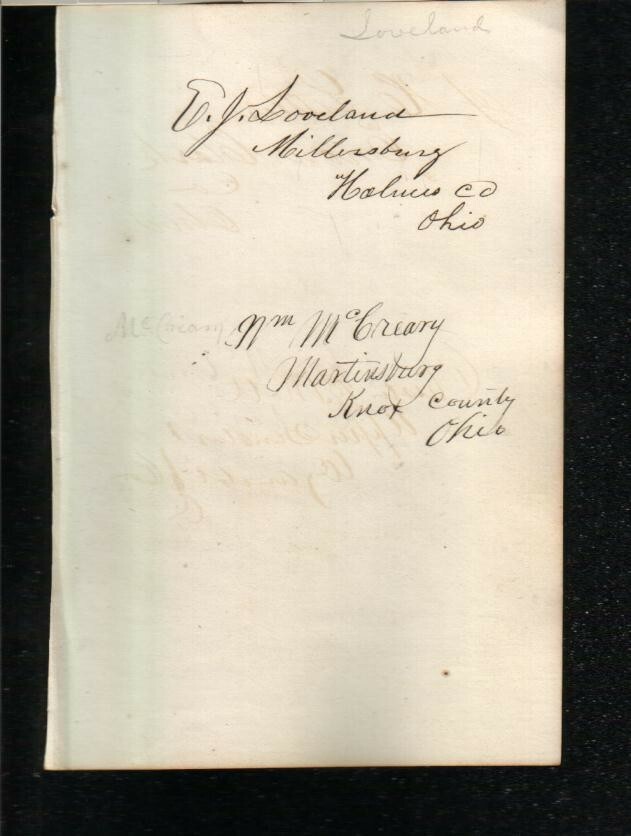 Loveland
E. J. Loveland
Millersburg
Holmes co
Ohio
McCreary
Wm McCreary
Martinsburg
Knox County
Ohio